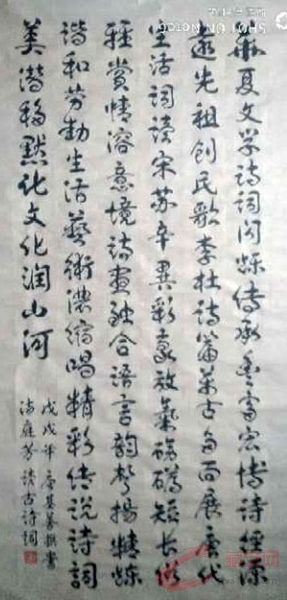 华夏文学诗词闪烁传承丰富宏博诗经源
远先祖创民歌李杜诗篇万古多面展唐代
生活词读宋苏辛异彩豪放气磅礴短长俱
轻赏情溶意境诗画融合语言韵声扬精炼
谐和劳动生活艺术浓缩唱精彩传说诗词
美潜移默化文化润山河
戊戌年唐基撰书
庭芳读古诗词